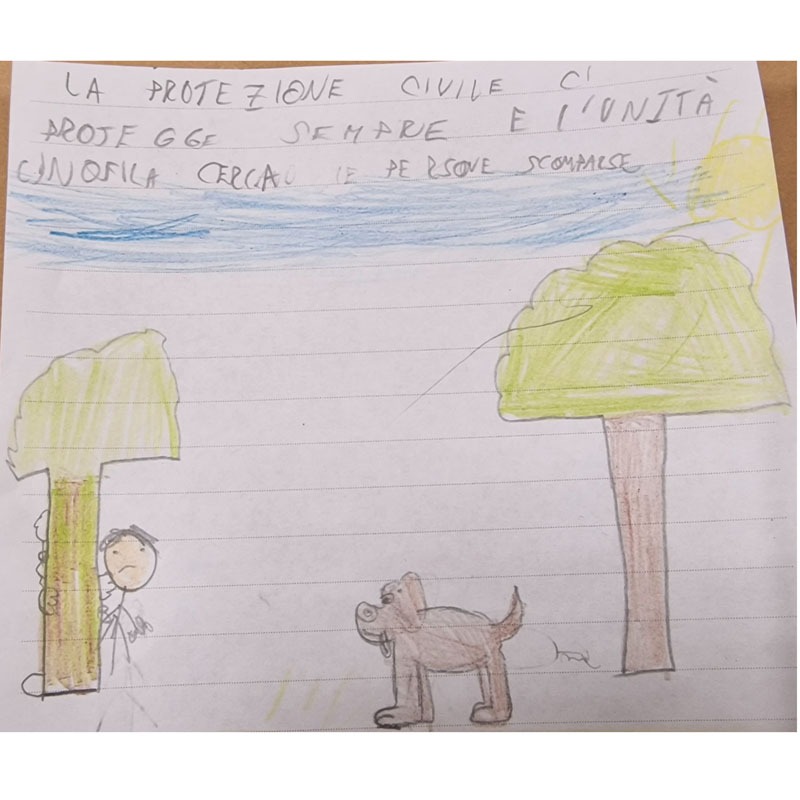 LA PROTEZIONE CIVILE CI
PROTEGGE SEMPRE E L'UNITÀ
CINOFILA CERCA LE PERSONE SCOMPARSE